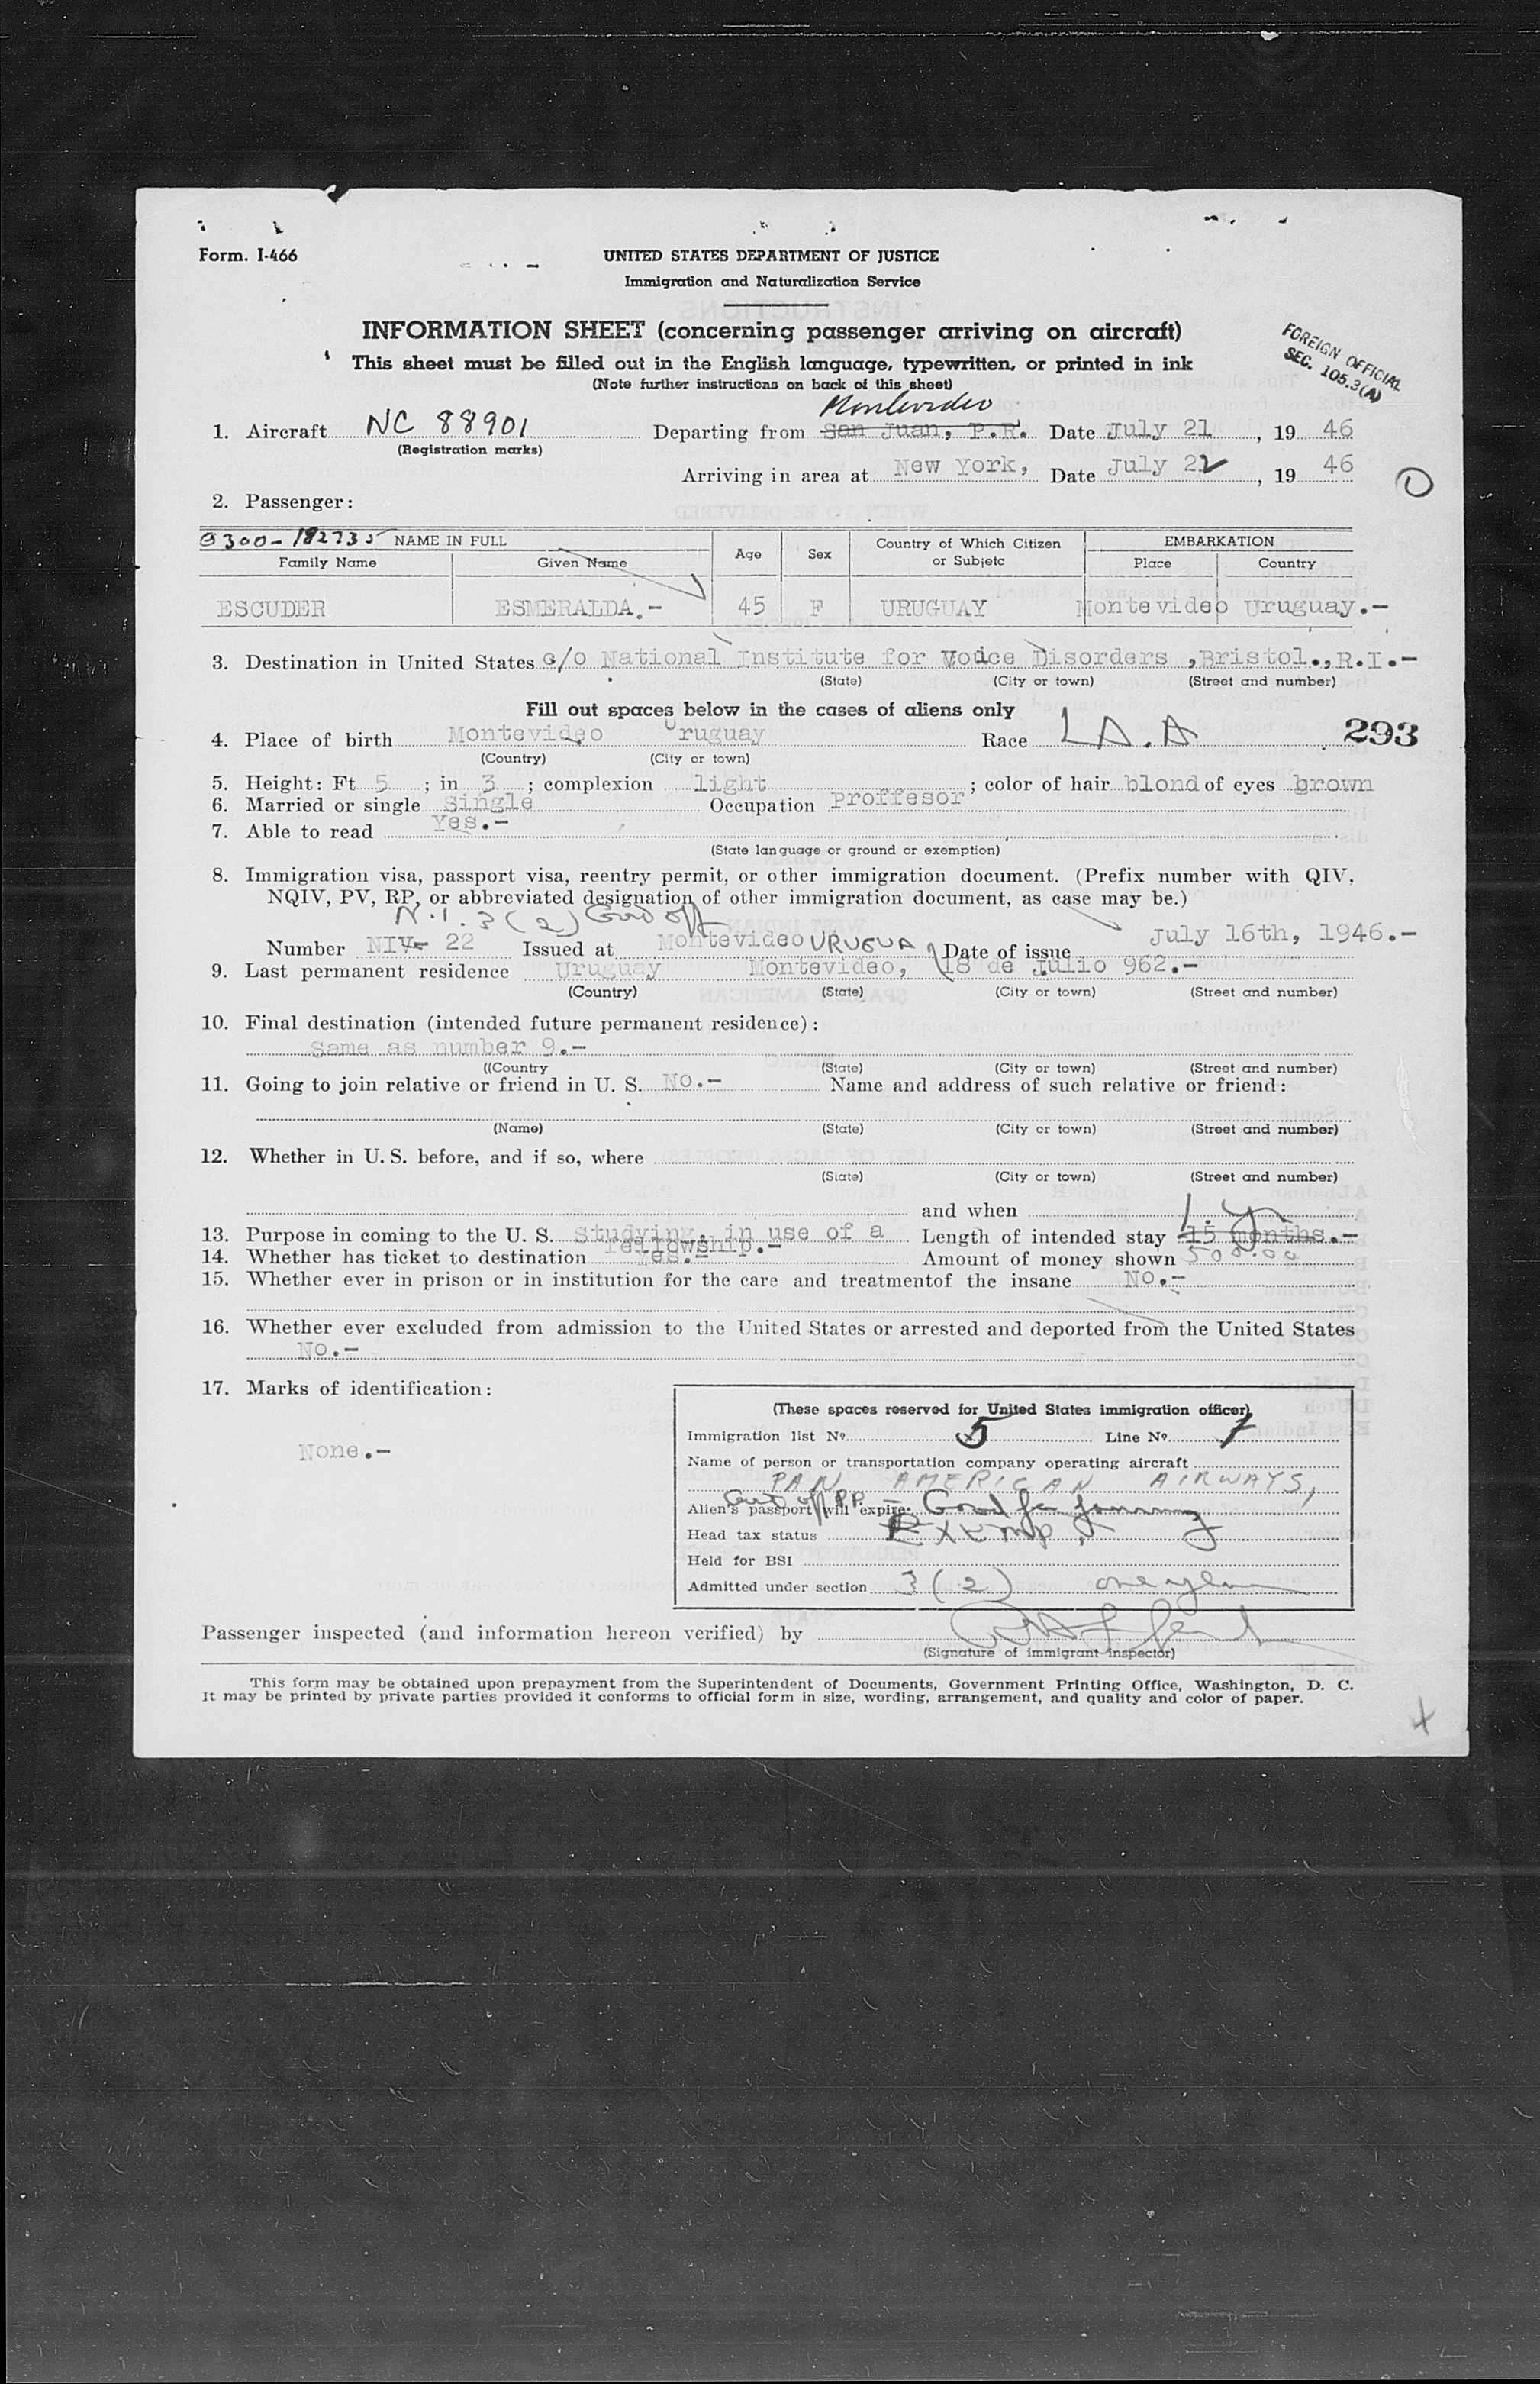 Form. I-466
UNITED STATES DEPARTMENT OF JUSTICE
Immigration and Naturalization Service
INFORMATION SHEET (concerning passenger arriving on aircraft)
This sheet must be filled out in the English language, typewritten, or printed in ink
(Note further instructions on back of this sheet)
FOREIGN OFFICIAL
SEC. 105.3(A)
Montevideo
1. Aircraft NC 88901 Departing from San Juan, P.R. Date July 21, 19 46
(Registration marks)
Arriving in area at New York, Date July 22, 19 46
2. Passenger:
0300-182735 NAME IN FULL Age Sex Country of Which Citizen or Subjetc EMBARKATION
Family Name Given Name Place Country
ESCUDER ESMERALDA.- 45 F URUGUAY Montevideo Uruguay.-
3. Destination in United States c/o National Institute for Voice Disorders ,Bristol.,R.I.-
(State) (City or town) (Street and number)
Fill out spaces below in the cases of aliens only
4. Place of birth Montevideo Uruguay Race L A. A 293
(Country) (City or town)
5. Height: Ft 5 ; in 3 ; complexion light ; color of hair blond of eyes brown
6. Married or single Single Occupation Proffesor
7. Able to read Yes.-
(State language or ground or exemption)
8. Immigration visa, passport visa, reentry permit, or other immigration document. (Prefix number with QIV,
NQIV, PV, RP, or abbreviated designation of other immigration document, as case may be.)
N.I. 3(2) Gov off
Number NIV- 22 Issued at Montevideo URUGUAY Date of issue July 16th, 1946.-
9. Last permanent residence Uruguay Montevideo, 18 de Julio 962.-
(Country) (State) (City or town) (Street and number)
10. Final destination (intended future permanent residence):
Same as number 9.-
((Country (State) (City or town) (Street and number)
11. Going to join relative or friend in U. S. No.- Name and address of such relative or friend:
(Name) (State) (City or town) (Street and number)
12. Whether in U. S. before, and if so, where
(State) (City or town) (Street and number)
and when
1. yr
13. Purpose in coming to the U. S. Studying, in use of a fellowship.- Length of intended stay 15 months.-
14. Whether has ticket to destination Yes.- Amount of money shown 500.00
15. Whether ever in prison or in institution for the care and treatmentof the insane No.-
16. Whether ever excluded from admission to the United States or arrested and deported from the United States
No.-
17. Marks of identification:
None.-
(These spaces reserved for United States immigration officer)
Immigration list No 5 Line No 7
Name of person or transportation company operating aircraft
PAN AMERICAN AIRWAYS,
Alien's passport will expire
Head tax status Exempt
Held for BSI
Admitted under section 3(2) one year
Passenger inspected (and information hereon verified) by
(Signature of immigrant inspector)
This form may be obtained upon prepayment from the Superintendent of Documents, Government Printing Office, Washington, D. C.
It may be printed by private parties provided it conforms to official form in size, wording, arrangement, and quality and color of paper.